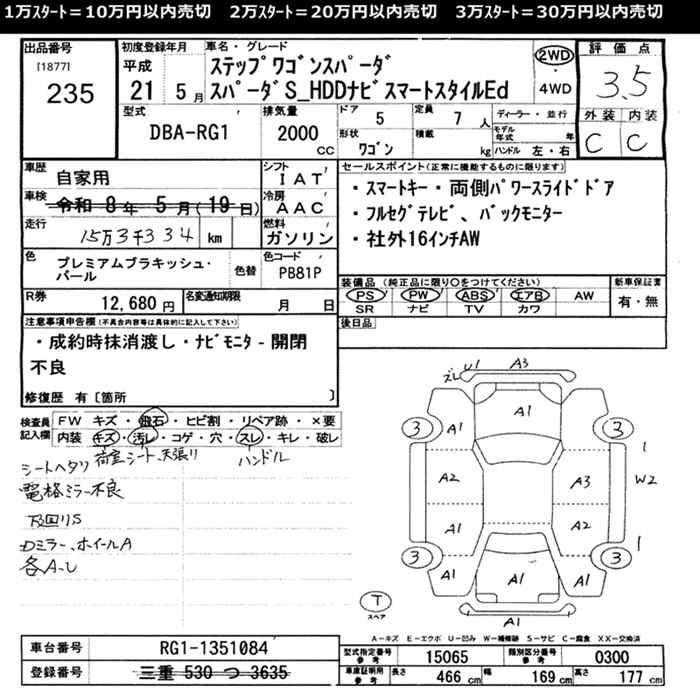 1万ｽﾀｰﾄ＝10万円以内売切　2万ｽﾀｰﾄ＝20万円以内売切　3万ｽﾀｰﾄ＝30万円以内売切
出品番号
[1877]
235
初度登録年月
平成
21 5月
車名・グレード
ｽﾃｯﾌﾟﾜｺﾞﾝｽﾊﾟｰﾀﾞ
ｽﾊﾟｰﾀﾞS_HDDﾅﾋﾞｽﾏｰﾄｽﾀｲﾙEd
2WD
・
4WD
評価点
3.5
外装 内装
C C
型式
DBA-RG1
排気量
2000
cc
ドア
5
定員
7人
形状
ﾜｺﾞﾝ
積載
kg
ディーラー・並行
モデル年式 年
ハンドル 左・右
車歴
自家用
シフト
IAT
車検
令和 8年 5月(19日)
冷房
AAC
走行
15万3千334 km
燃料
ガソリン
色
プレミアムブラキッシュ・パール
色替
色コード
PB81P
R券
12,680 円
名変通知期限
月 日
セールスポイント(正常に機能するものに限ります)
・ｽﾏｰﾄｷｰ・両側ﾊﾟﾜｰｽﾗｲﾄﾞﾄﾞｱ
・ﾌﾙｾｸﾞﾃﾚﾋﾞ、ﾊﾞｯｸﾓﾆﾀｰ
・社外16インチAW
装備品 (純正品に限り○をつけてください)
PS PW ABS エアB AW
SR ナビ TV カワ
新車保証書
有・無
後日品
注意事項申告欄(不具合内容等は具体的に記入して下さい)
・成約時抹消渡し・ﾅﾋﾞﾓﾆﾀｰ開閉
不良
修復歴 有〔箇所 〕
検査員
記入欄
FW キズ・飛石・ヒビ割・リペア跡・×要
内装 キズ・汚レ・コゲ・穴・スレ・キレ・破レ
シートヘタリ 荷室シート、天張り ハンドル
電格ミラー不良
下回りS
Dミラー、ホイールA
各A-U
ズレ U1 A3
A1
3 A1 A1 3
A2 A3 W2
A1 A2
3 A1 A1 A1 3
A1
T
スペア
A－キズ E－エクボ U－凹み W－補修跡 S－サビ C－腐食 XX－交換済
車台番号
RG1-1351084
登録番号
三重 530 つ 3635
型式指定番号
参考
15065
類別区分番号
参考
0300
車庫証明用
参考
長さ
466 cm
幅
169 cm
高さ
177 cm